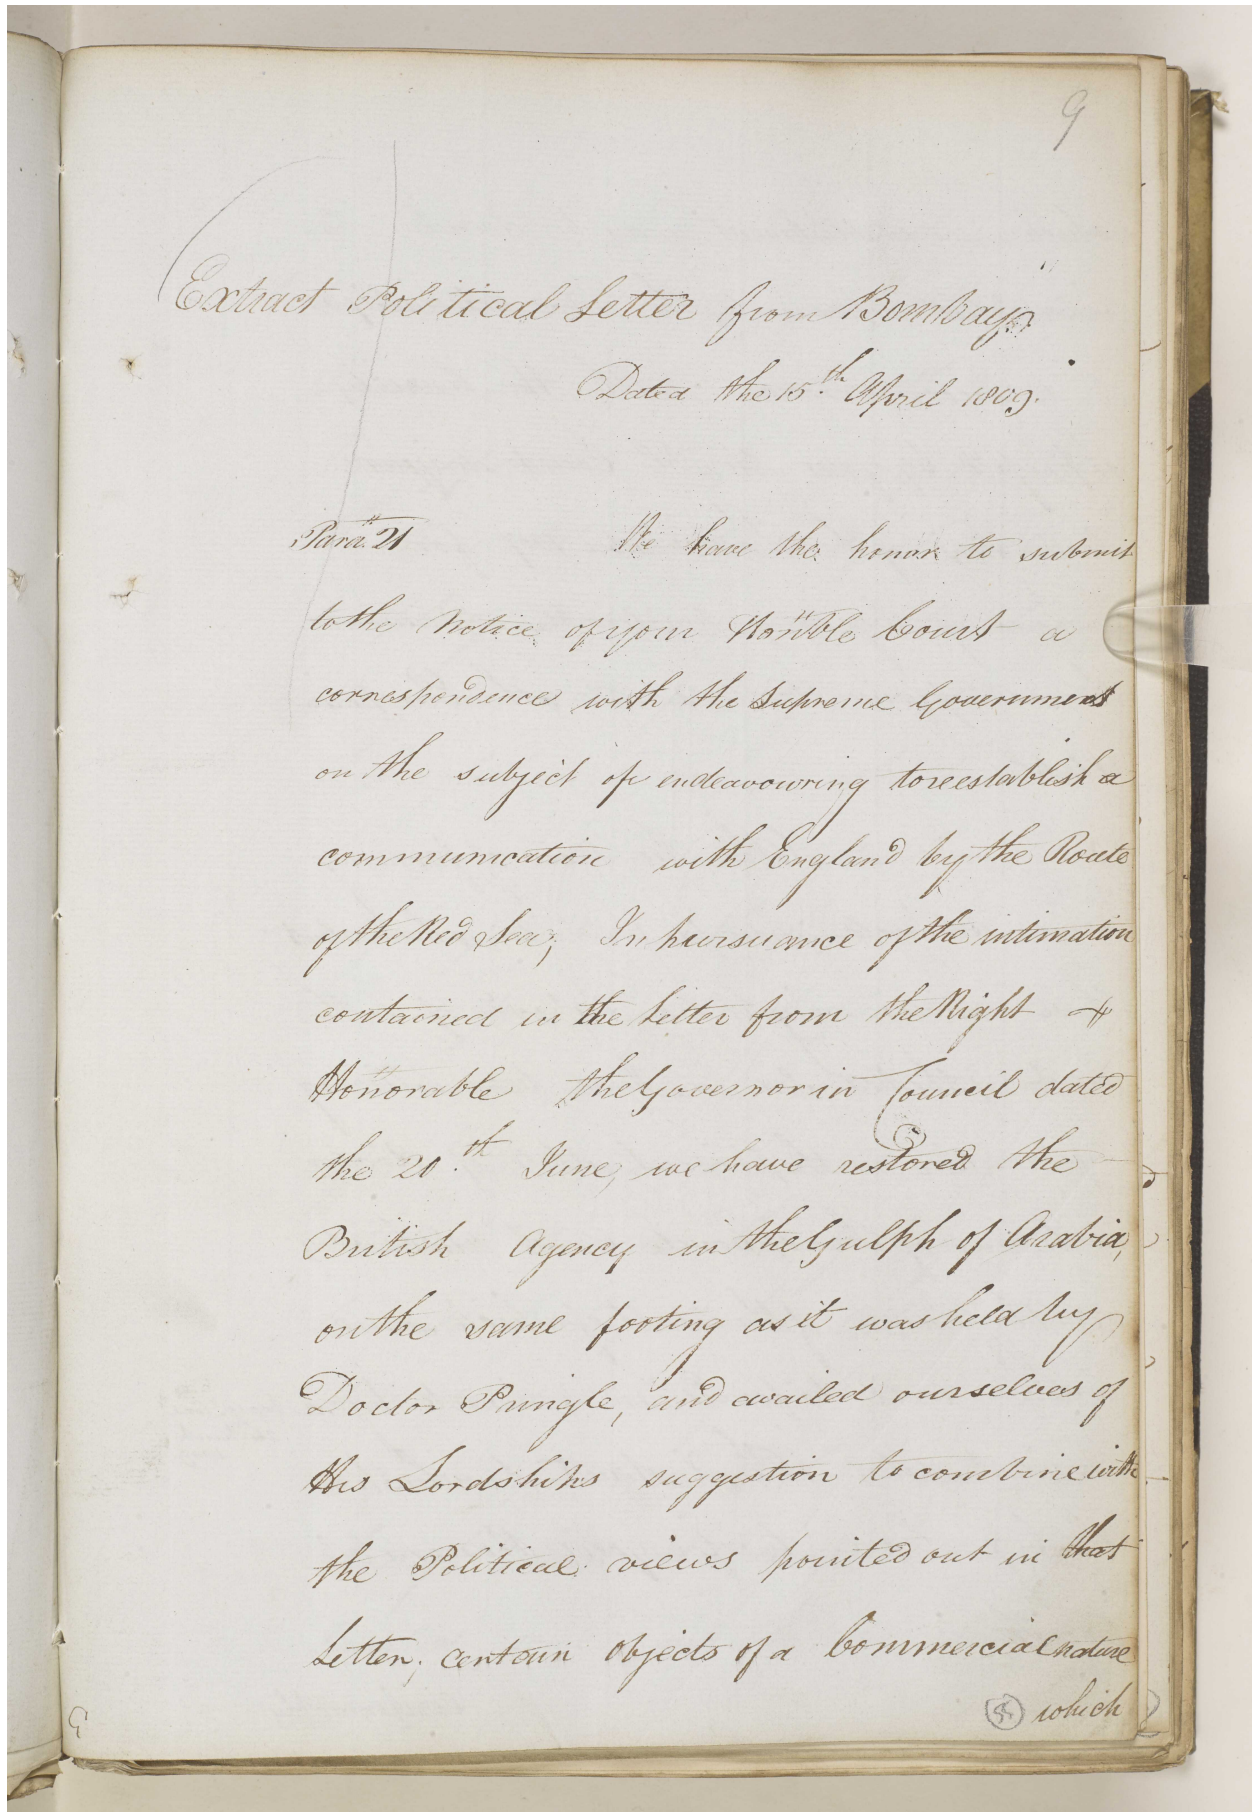 9
Extract Political Letter from Bombay
Dated the 15th April 1809.
Para. 21 We have the honor to submit
to the Notice of your Honble Court a
correspondence with the Supreme Government
on the subject of endeavouring to reestablish a
communication with England by the Route
of the Red Sea; In pursuance of the intimation
contained in the Letter from the Right
Honorable the Governor in Council dated
the 20th June, we have restored the
British Agency in the Gulph of Arabia,
on the same footing as it was held by
Doctor Pringle, and availed ourselves of
His Lordships suggestion to combine with
the Political views pointed out in that
Letter, certain objects of a Commercial nature
which